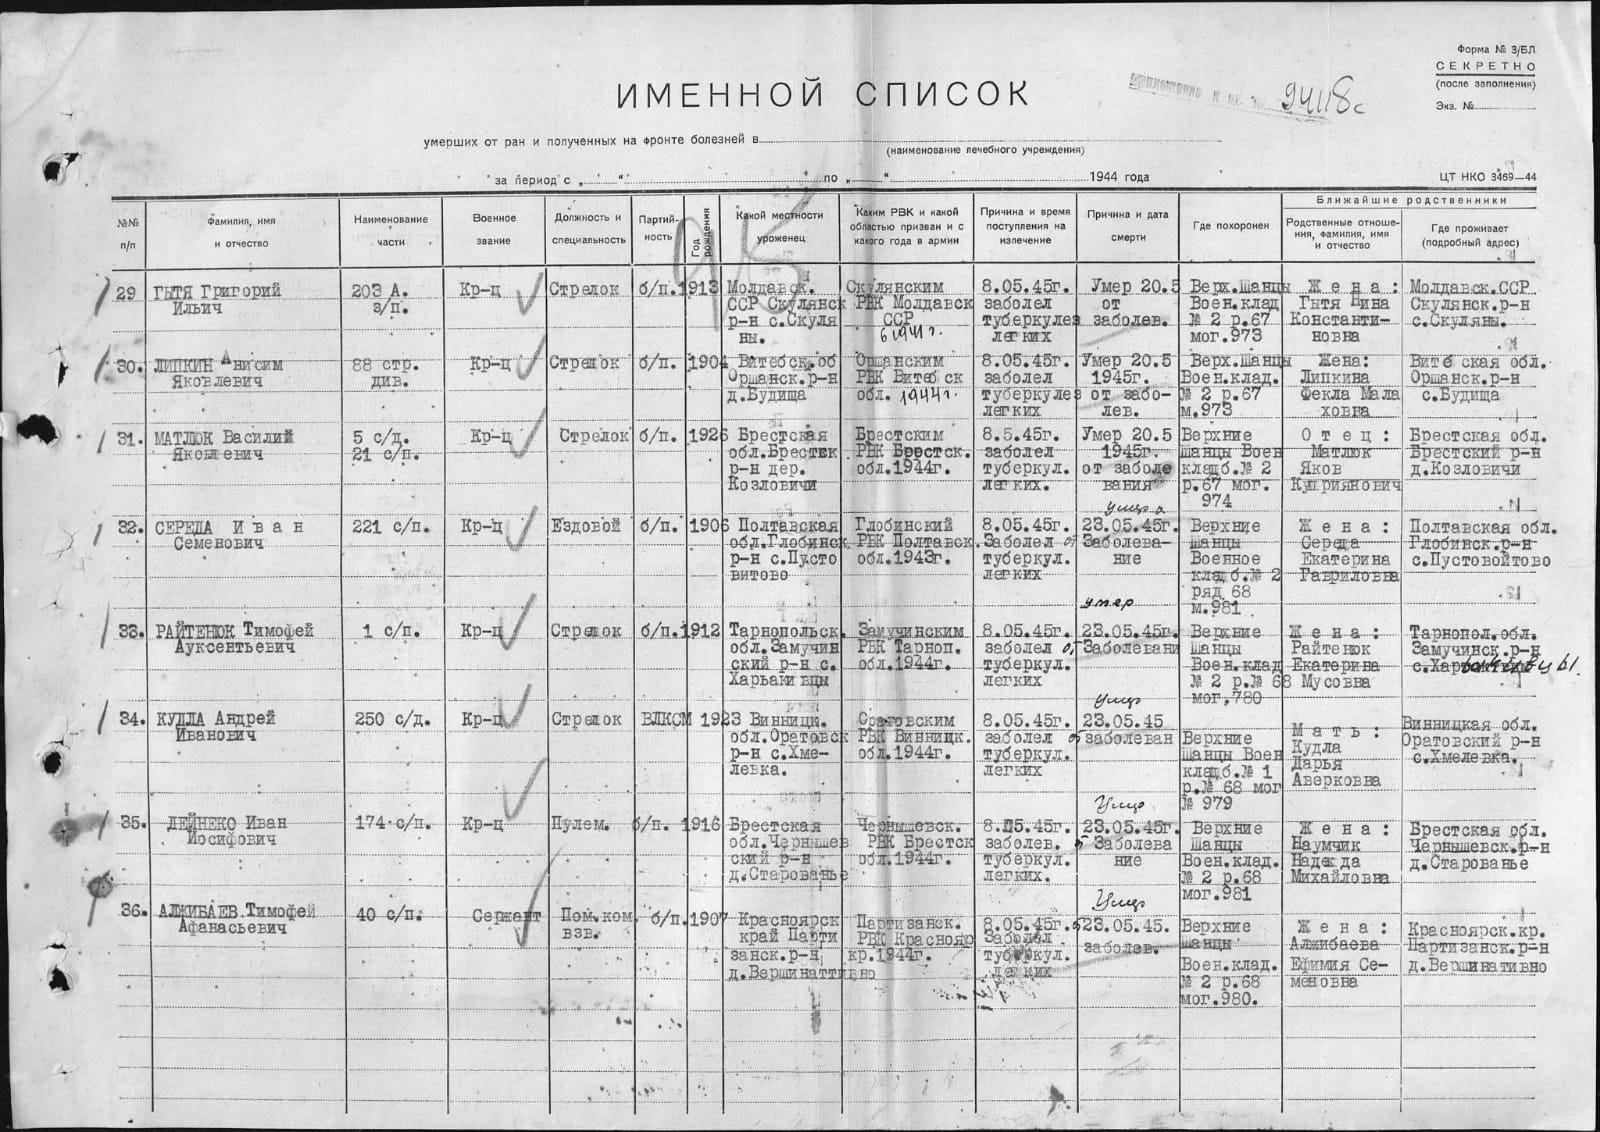 Форма № 3/БЛ
СЕКРЕТНО
(после заполнения)
Экз. №
94118с
ИМЕННОЙ СПИСОК
умерших от ран и полученных на фронте болезней в
(наименование лечебного учреждения)
за период с „ “ по „ “ 1944 года
ЦТ НКО 3469—44
№№ п/п
Фамилия, имя и отчество
Наименование части
Военное звание
Должность и специальность
Партий-ность
Год рождения
Какой местности уроженец
Каким РВК и какой областью призван и с какого года в армии
Причина и время поступления на излечение
Причина и дата смерти
Где похоронен
Ближайшие родственники
Родственные отноше-ния, фамилия, имя и отчество
Где проживает (подробный адрес)
29 ГЫТЯ Григорий 203 А. Кр-ц Стрелок б/п. 1913 Молдавск. Скулянским 8.05.45г. Умер 20.5 Верх.Шанцы Жена: Молдавск.ССР
Ильич з/п. ССР Скулянск РВК Молдавск заболел от Воен.клад Гытя Нина Скулянск.р-н
р-н с.Скуля ССР туберкулез заболев. № 2 р.67 Константи- с.Скуляны.
ны. 6 1941г. легких мог.973 новна
30. ЛИПКИН Анисим 88 стр. Кр-ц Стрелок б/п. 1904 Витебск.об Оршанским 8.05.45г. Умер 20.5 Верх.Шанцы Жена: Витебская обл.
Яковлевич див. Оршанск.р-н РВК Витебск заболел 1945г. Воен.клад. Липкина Оршанск.р-н
д.Будища обл. 1944г. туберкулез от забо- № 2 р.67 Фекла Мала с.Будища
легких лев. м.973 ховна
31. МАТЛЮК Василий 5 с/д. Кр-ц Стрелок б/п. 1926 Брестская Брестским 8.5.45г. Умер 20.5 Верхние Отец: Брестская обл.
Яковлевич 21 с/п. обл.Брестск РВК Брестск. заболел 1945г. Шанцы Воен Матлюк Брестский р-н
р-н дер. обл.1944г. туберкул. от заболе кладб.№ 2 Яков д.Козловичи
Козловичи легких. вания р.67 мог. Куприянович
974
32. СЕРЕДА Иван 221 с/п. Кр-ц Ездовой б/п. 1906 Полтавская Глобинский 8.05.45г. 23.05.45г. Верхние Жена: Полтавская обл.
Семенович обл.Глобинск РВК Полтавск. Заболел от Заболева- Шанцы Середа Глобинск.р-н
р-н с.Пусто обл.1943г. туберкул. ние Военное Екатерина с.Пустовойтово
витово легких кладб.№ 2 Гавриловна
ряд 68
умер м.981
33. РАЙТЕНЮК Тимофей 1 с/п. Кр-ц Стрелок б/п. 1912 Тарнопольск. Замучинским 8.05.45г. 23.05.45г. Верхние Жена: Тарнопол.обл.
Ауксентьевич обл.Замучин РВК Тарноп. заболел от Заболевани Шанцы Райтенюк Замучинск.р-н
ский р-н с. обл.1944г. туберкул. Воен.клад Екатерина
Харьакивцы легких № 2 р.№ 68 Мусовна
мог.780
34. КУДЛА Андрей 250 с/д. Кр-ц Стрелок ВЛКСМ 1923 Винницк. Оратовским 8.05.45г. 23.05.45 Мать: Винницкая обл.
Иванович обл.Оратовск РВК Винницк. заболел от заболеван Верхние Кудла Оратовский р-н
р-н с.Хме- обл.1944г. туберкул. Шанцы Воен Дарья с.Хмелевка.
левка. легких кладб.№ 1 Аверковна
р.№ 68 мог
№ 979
35. ДЕЙНЕКО Иван 174 с/п. Кр-ц Пулем. б/п. 1916 Брестская Чернышевск. 8.05.45г. 23.05.45г. Верхние Жена: Брестская обл.
Иосифович обл.Чернышев РВК Брестск заболев. Заболева Шанцы Наумчик Чернышевск.р-н
ский р-н обл.1944г. туберкул. ние Воен.клад. Надежда д.Старованье
д.Старованье легких. № 2 р.68 Михайловна
мог.981
36. АЛЖИБАЕВ.Тимофей 40 с/п. Сержант Пом.ком. б/п. 1907 Красноярск Партизанск. 8.05.45г. 23.05.45. Верхние Жена: Красноярск.кр.
Афанасьевич взв. край Парти РВК Краснояр Заболел заболев. Шанцы Алжибаева Партизанск.р-н
занск.р-н кр.1944г. туберкул. Воен.клад. Ефимия Се- д.Вершинативно
д.Вершинаттивно легких № 2 р.68 меновна
мог.980.